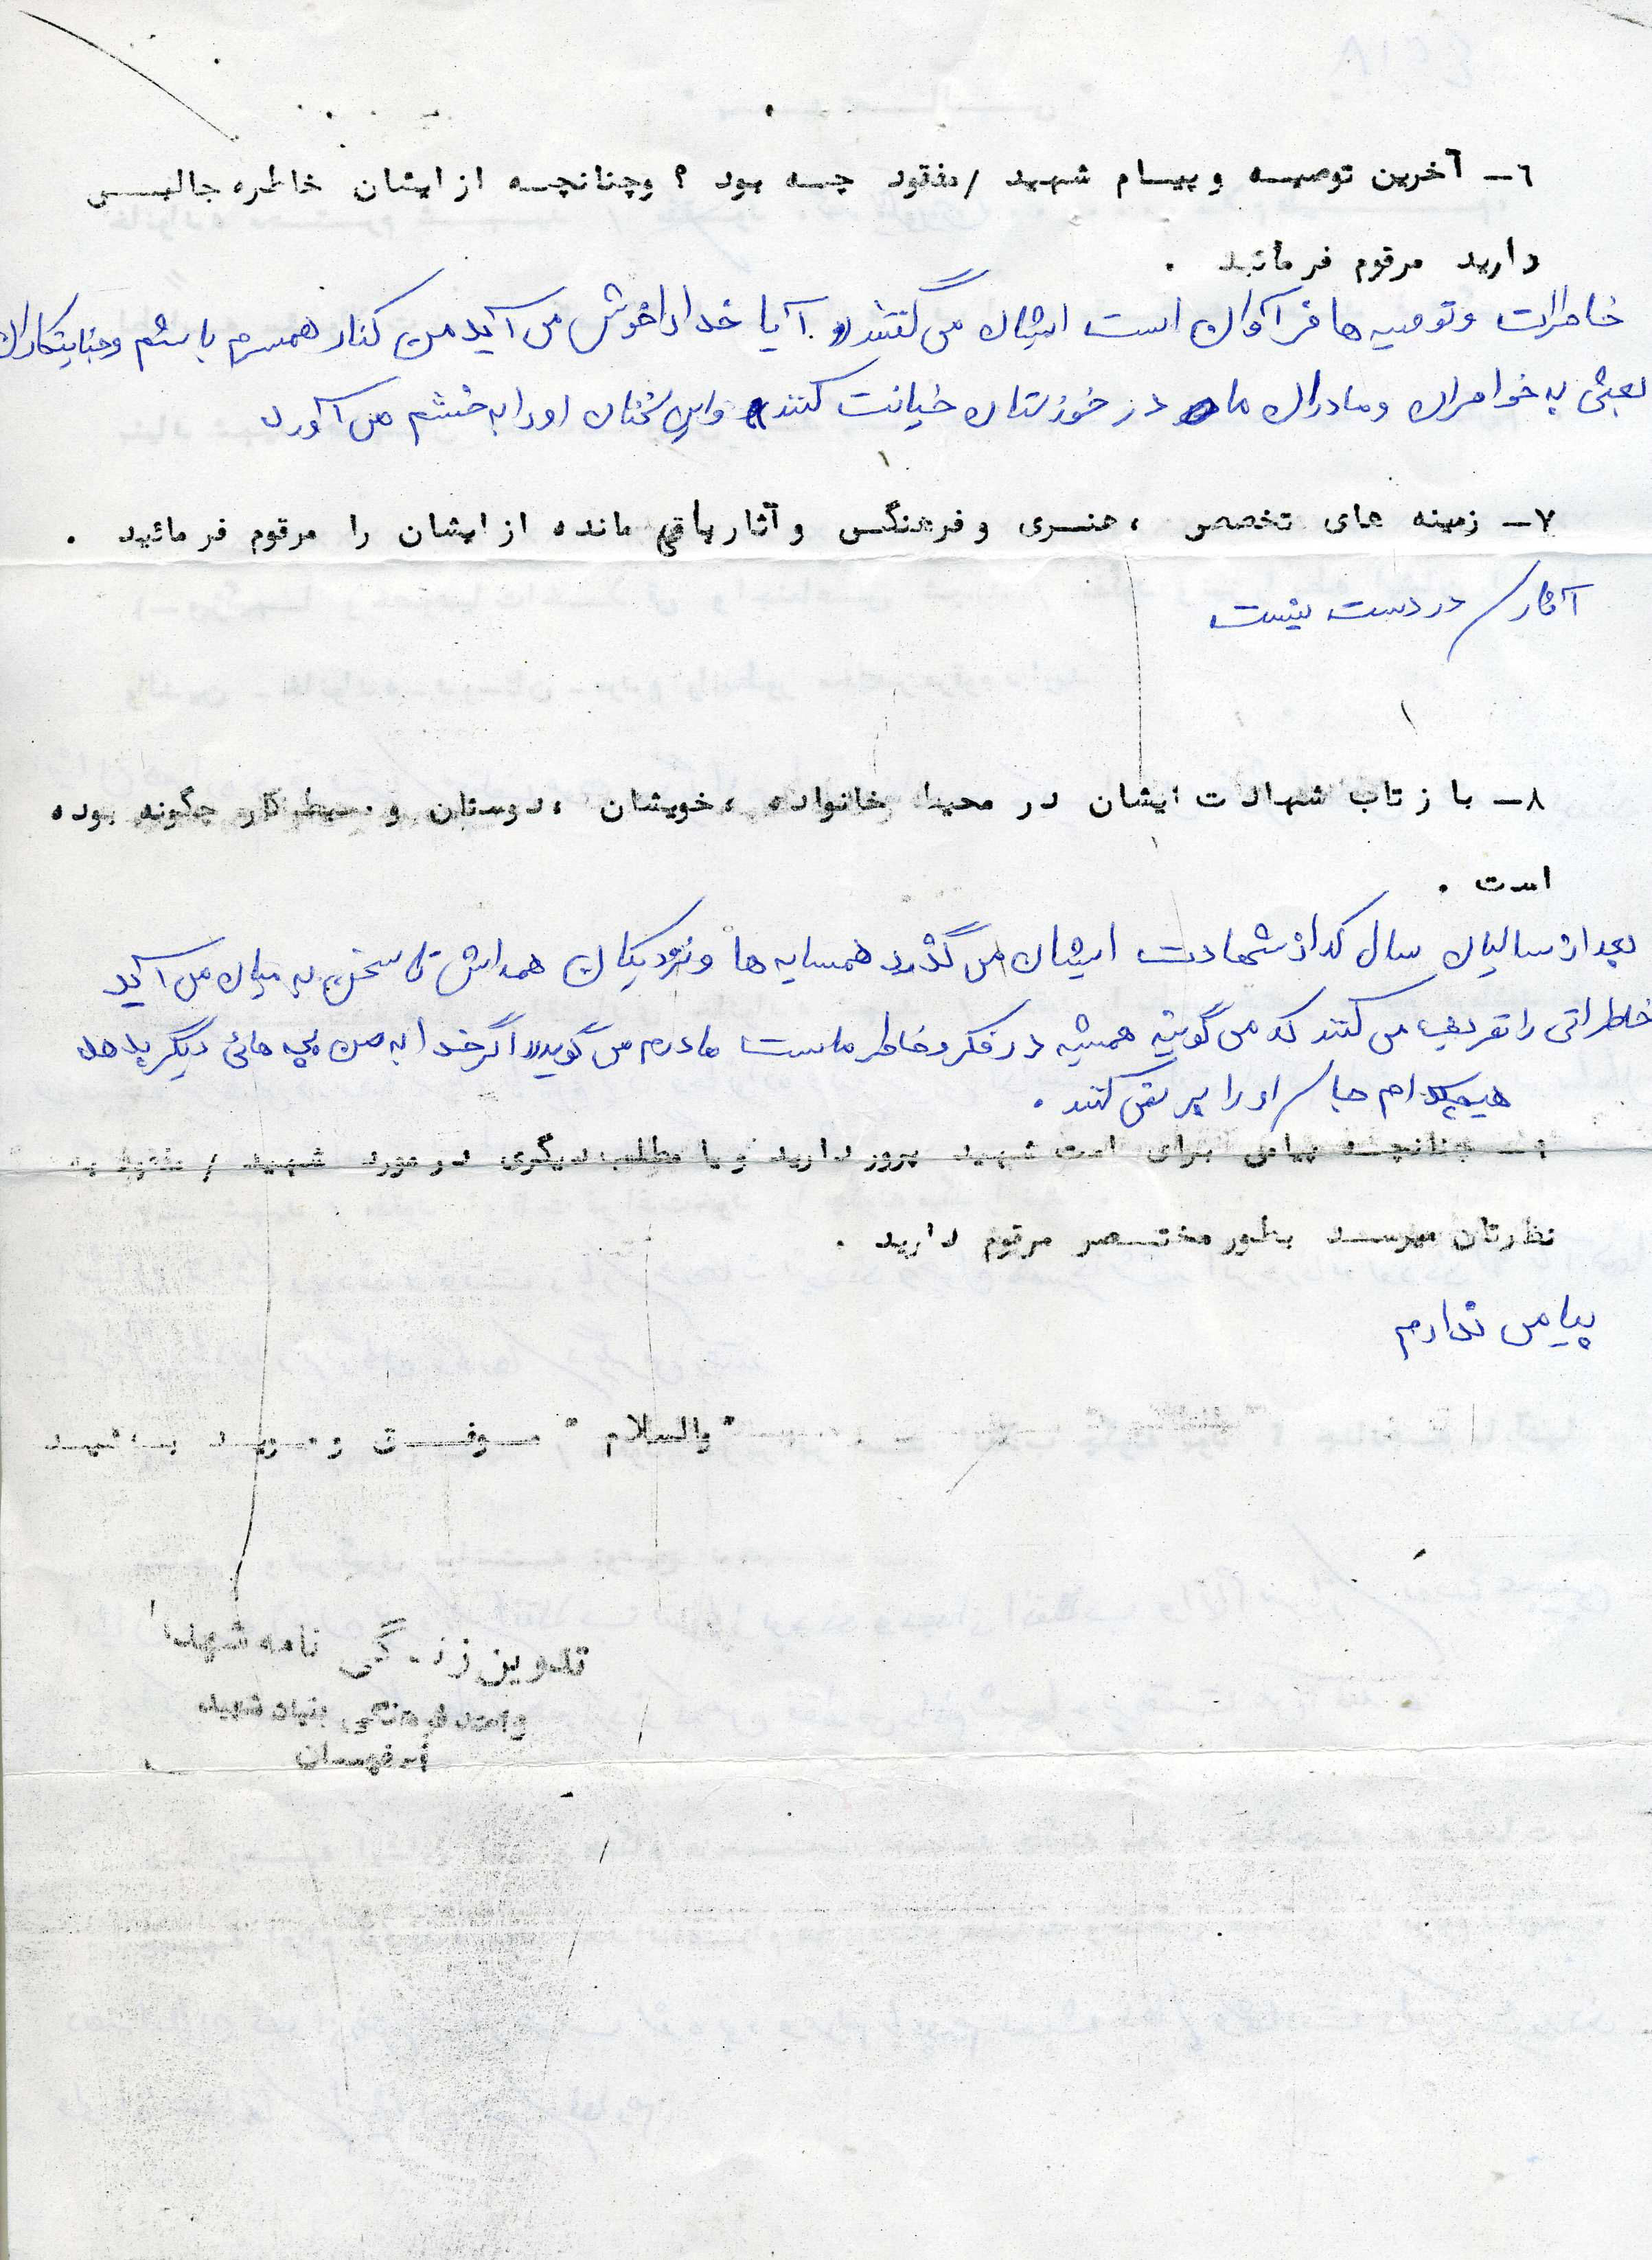 ٦ــ آخرین توصیــه و پیــام شهید / مفقود چــه بود ؟ وچنانچــه از ایشان خاطره جالبــی
دارید مرقوم فرمائید .
خاطرات و توصیه ها فرآوان است ایشان می گفتند « آیا خدا را خوش می آید من کنار همسرم باشم و جنایتکاران
بعثی به خواهران و مادران ما در خوزستان خیانت کنند » و این سخنان او را به خشم می آورد
٧ــ زمینه های تخصص ، هنــری و فرهنگی و آثار باقی مانده از ایشان را مرقوم فرمائید .
آثار در دست نیست
٨ــ باز تاب شهادت ایشان در محیط خانواده ، خویشان ، دوستان و محیط کار چگونه بوده
است .
بعد از سالیان سال که از شهادت ایشان می گذرد همسایه ها و نزدیکان همه اش تا سخن به میان می آید
خاطراتی را تعریف می کنند که می گویند همیشه در فکر و خاطر ماست مادرم می گوید « اگر خدا به من بچه هائی دیگر بدهد
هیچکدام جا او را پر نمی کنند .
٩ــ چنانچــه پیامی برای امت شهید پرور دارید و یا مطلب دیگری در مورد شهید / مفقود به
نظرتان میرســد بطور مختــصر مرقوم دارید .
پیامی ندارم
" والسلام " مــوفــق و مویــد بــاشیــد
تدوین زنــدگی نامه شهدا
واحد فرهنگی بنیاد شهید